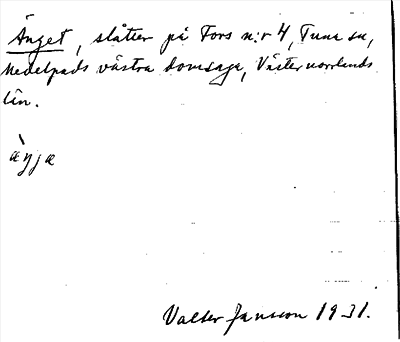 Änget, slåtter på Fors n:r 4, Tuna sn,
Medelpads västra domsaga, Västernorrlands
län.
àŋja
Valter Jansson 1931.